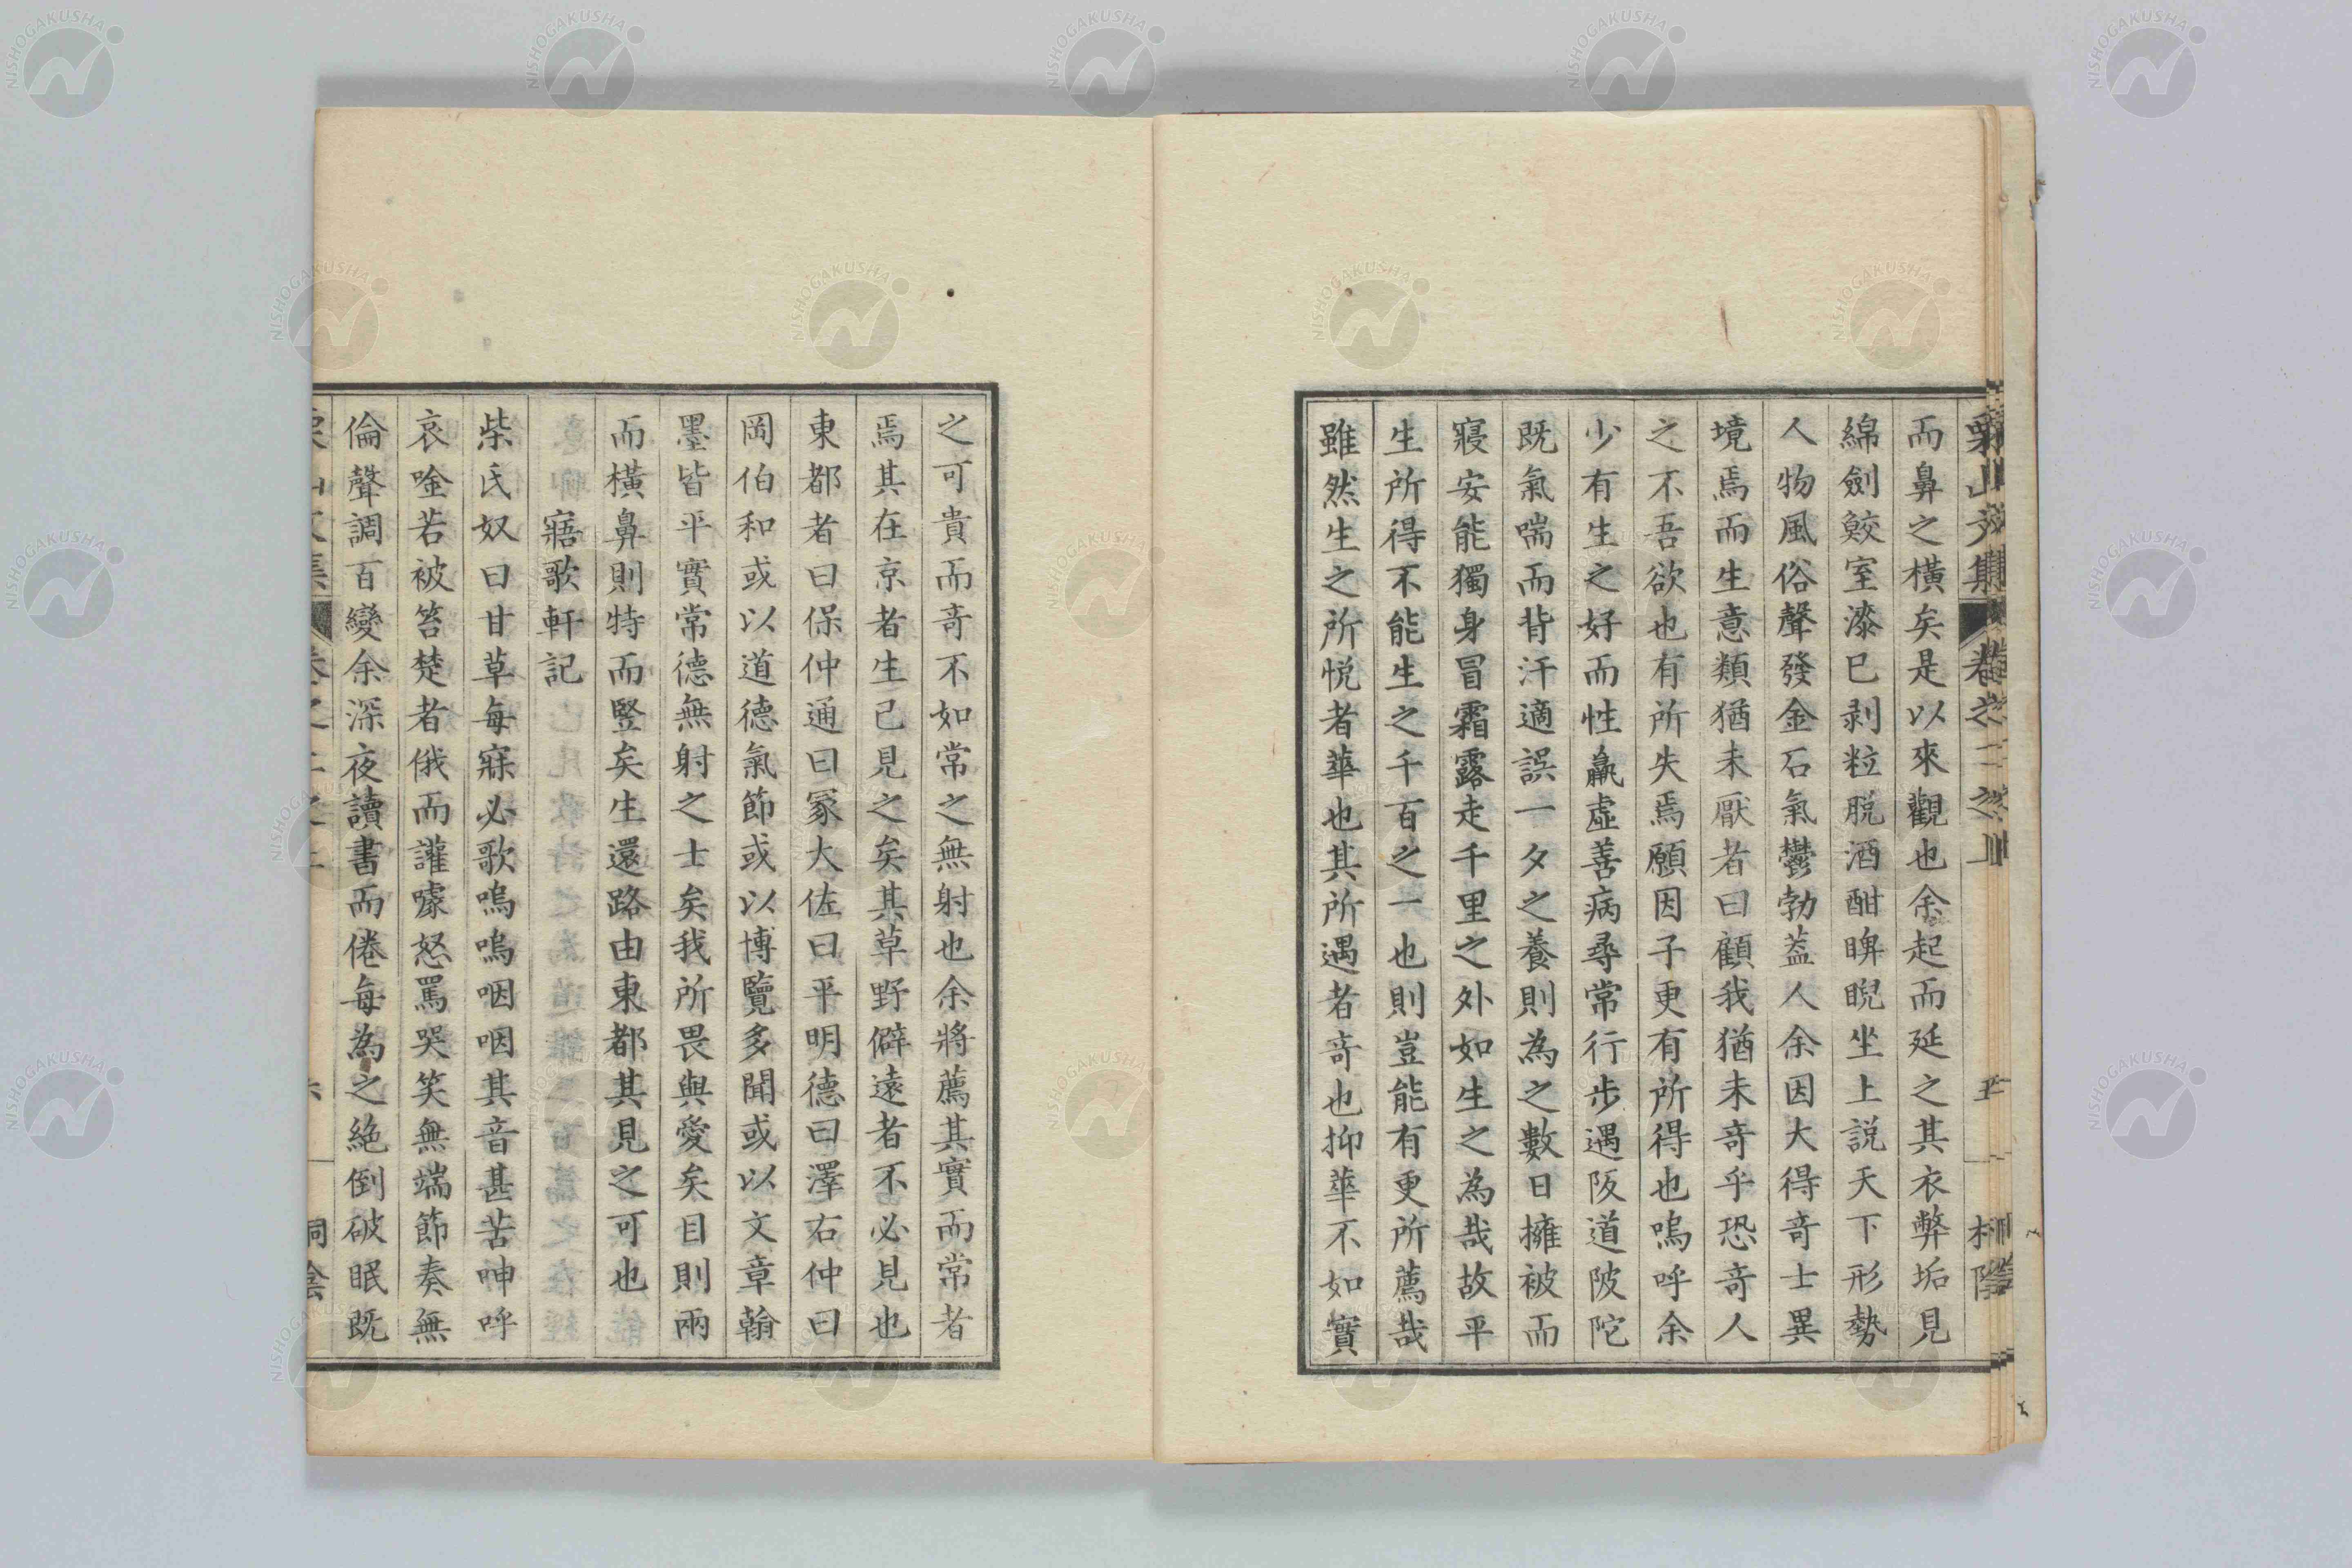 栗山文集 卷之二之上 五
而鼻之橫矣是以來觀也余起而延之其衣弊垢見
綿劍鮫室漆已剥粒脱酒酣睥睨坐上説天下形勢
人物風俗聲發金石氣鬱勃葢人余因大得奇士異
境焉而生意類猶未厭者曰顧我猶未奇乎恐奇人
之不吾欲也有所失焉願因子更有所得也嗚呼余
少有生之好而性羸虛善病尋常行步遇阪道陂陀
既氣喘而背汗適誤一夕之養則為之數日擁被而
寢安能獨身冒霜露走千里之外如生之為哉故平
生所得不能生之千百之一也則豈能有更所薦哉
雖然生之所悦者華也其所遇者奇也抑華不如實
之可貴而奇不如常之無射也余將薦其實而常者
焉其在京者生已見之矣其草野僻遠者不必見也
東都者曰保仲通曰冢大佐曰平明德曰澤右仲曰
岡伯和或以道德氣節或以博覽多聞或以文章翰
墨皆平實常德無射之士矣我所畏與愛矣目則兩
而橫鼻則特而竪矣生還路由東都其見之可也
寤歌軒記
柴氏奴曰甘草每寐必歌嗚嗚咽咽其音甚苦呻呼
哀唫若被笞楚者俄而讙噱怒罵哭笑無端節奏無
倫聲調百變余深夜讀書而倦每為之絶倒破眠既
NISHOGAKUSHA